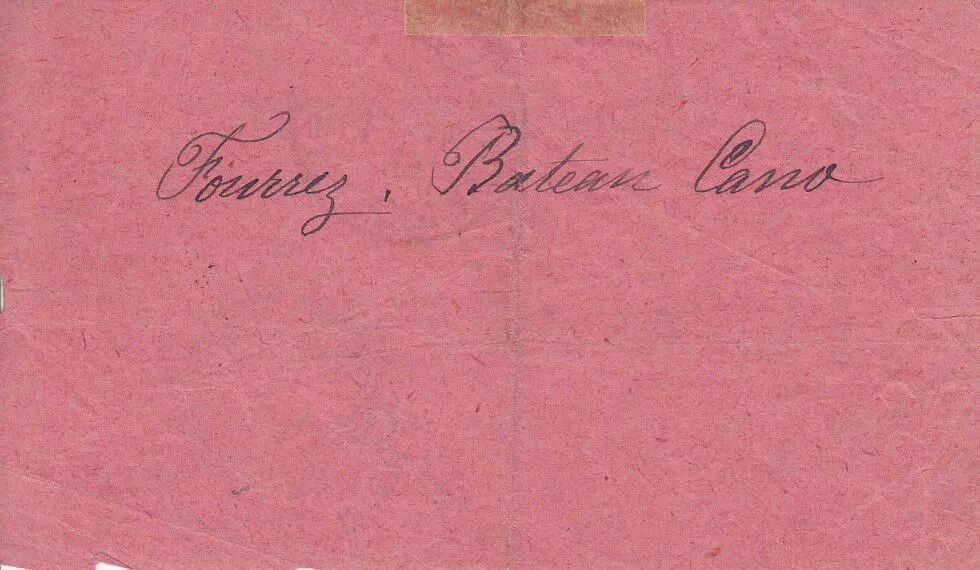 Fourrez, Bateau Cano